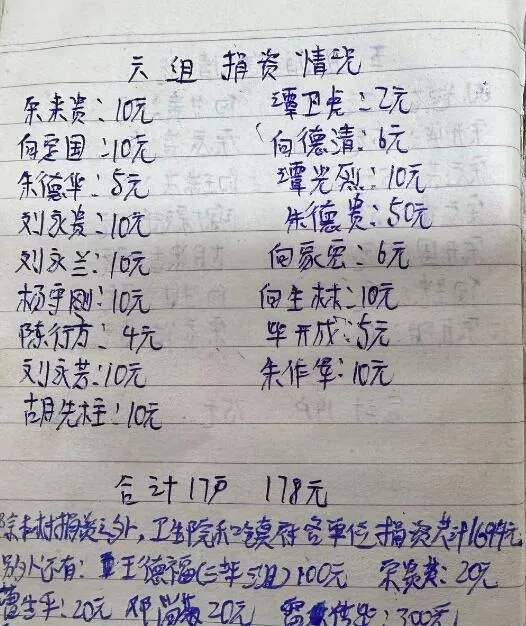 六组捐资情况
朱来贵:10元 谭卫虎:2元
向定国:10元 向德清:6元
朱德华:5元 谭光烈:10元
刘永贵:10元 朱德贵:50元
刘永兰:10元 向家宏:6元
杨宇刚:10元 向生林:10元
陈行方:4元 毕开成:5元
刘永芳:10元 朱作军:10元
胡先柱:10元
合计17户 178元
除本村捐资之外,卫生院和镇府各单位捐资共计1694元
别外还有:王德福(三坪三组)100元 宋 20元
20元 邓 20元 300元